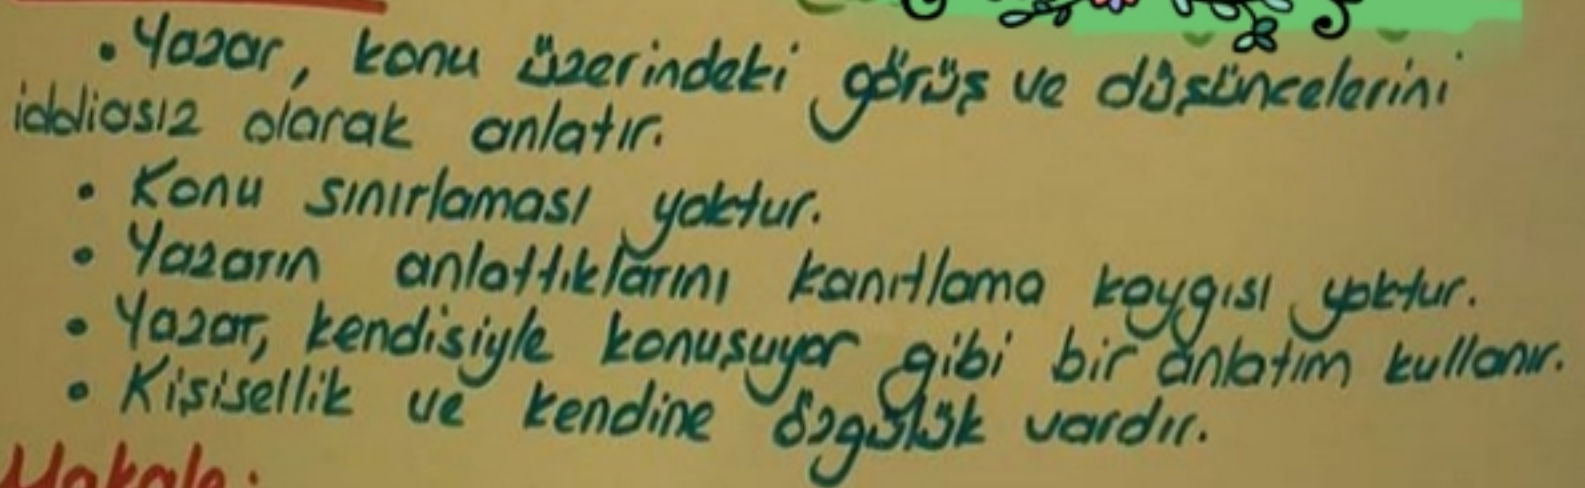 • Yazar, konu üzerindeki görüş ve düşüncelerini
iddiasız olarak anlatır.
• Konu sınırlaması yoktur.
• Yazarın anlattıklarını kanıtlama kaygısı yoktur.
• Yazar, kendisiyle konuşuyor gibi bir anlatım kullanır.
• Kişisellik ve kendine özgülük vardır.
Makale: